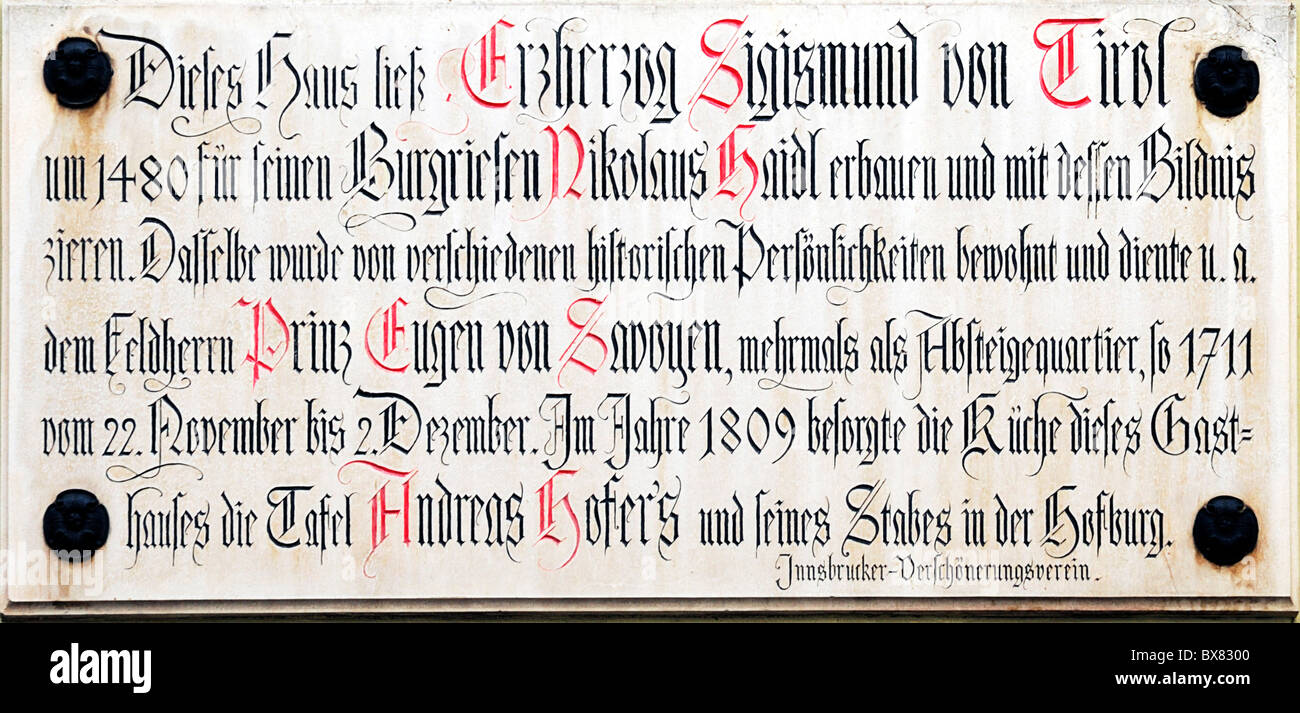 Dieses Haus ließ Erzherzog Sigismund von Tirol
um 1480 für seinen Burgriesen Nikolaus Haidl erbauen und mit dessen Bildnis
zieren. Dasselbe wurde von verschiedenen historischen Persönlichkeiten bewohnt und diente u. a.
dem Feldherrn Prinz Eugen von Savoyen, mehrmals als Absteigequartier, so 1711
vom 22. November bis 2. Dezember. Im Jahre 1809 besorgte die Küche dieses Gast=
hauses die Tafel Andreas Hofer's und seines Stabes in der Hofburg.
Innsbrucker-Verschönerungsverein.
alamy
Image ID: BX8300
www.alamy.com